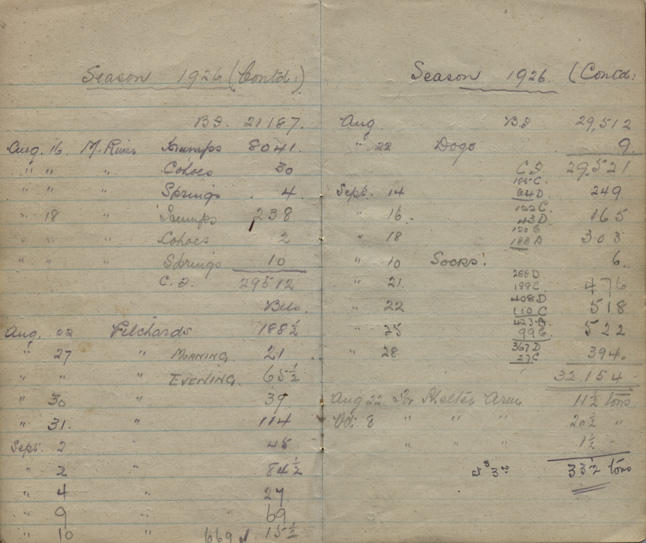 Season 1926 (Contd:)
B.F. 21187.
Aug. 16 M. River Humps 8041.
" " " Cohoes 30
" " " Springs . 4.
" 18 " Humps 238
" Cohoes 2
" Springs 10
C.F. 29512
Aug. Pilchards 188½
" 27 " MORNING. 21
" EVENING. 65½
" 30 " 39
" 31. " 114
Sept. 2 " 45
" 2 " 84½
" 4 " 27
" 9 " 69
" 10 " 15½
Season 1926 (Contd:
Aug. B.F 29,512
" 22 Dogs 9.
C.F. 29,521
Sept. 14 249
" 16. 122C. 43D. 165
" 18 303
" 10 SOCKS. 6.
" 21. 476
" 22 408D 110C 518
" 25 423D. 99C 522
" 28 367D 27C 394.
32,154
Aug 22 Arm 11½ tons
Oct. 8 " " " 20½ "
" " " 1½ "
33½ tons